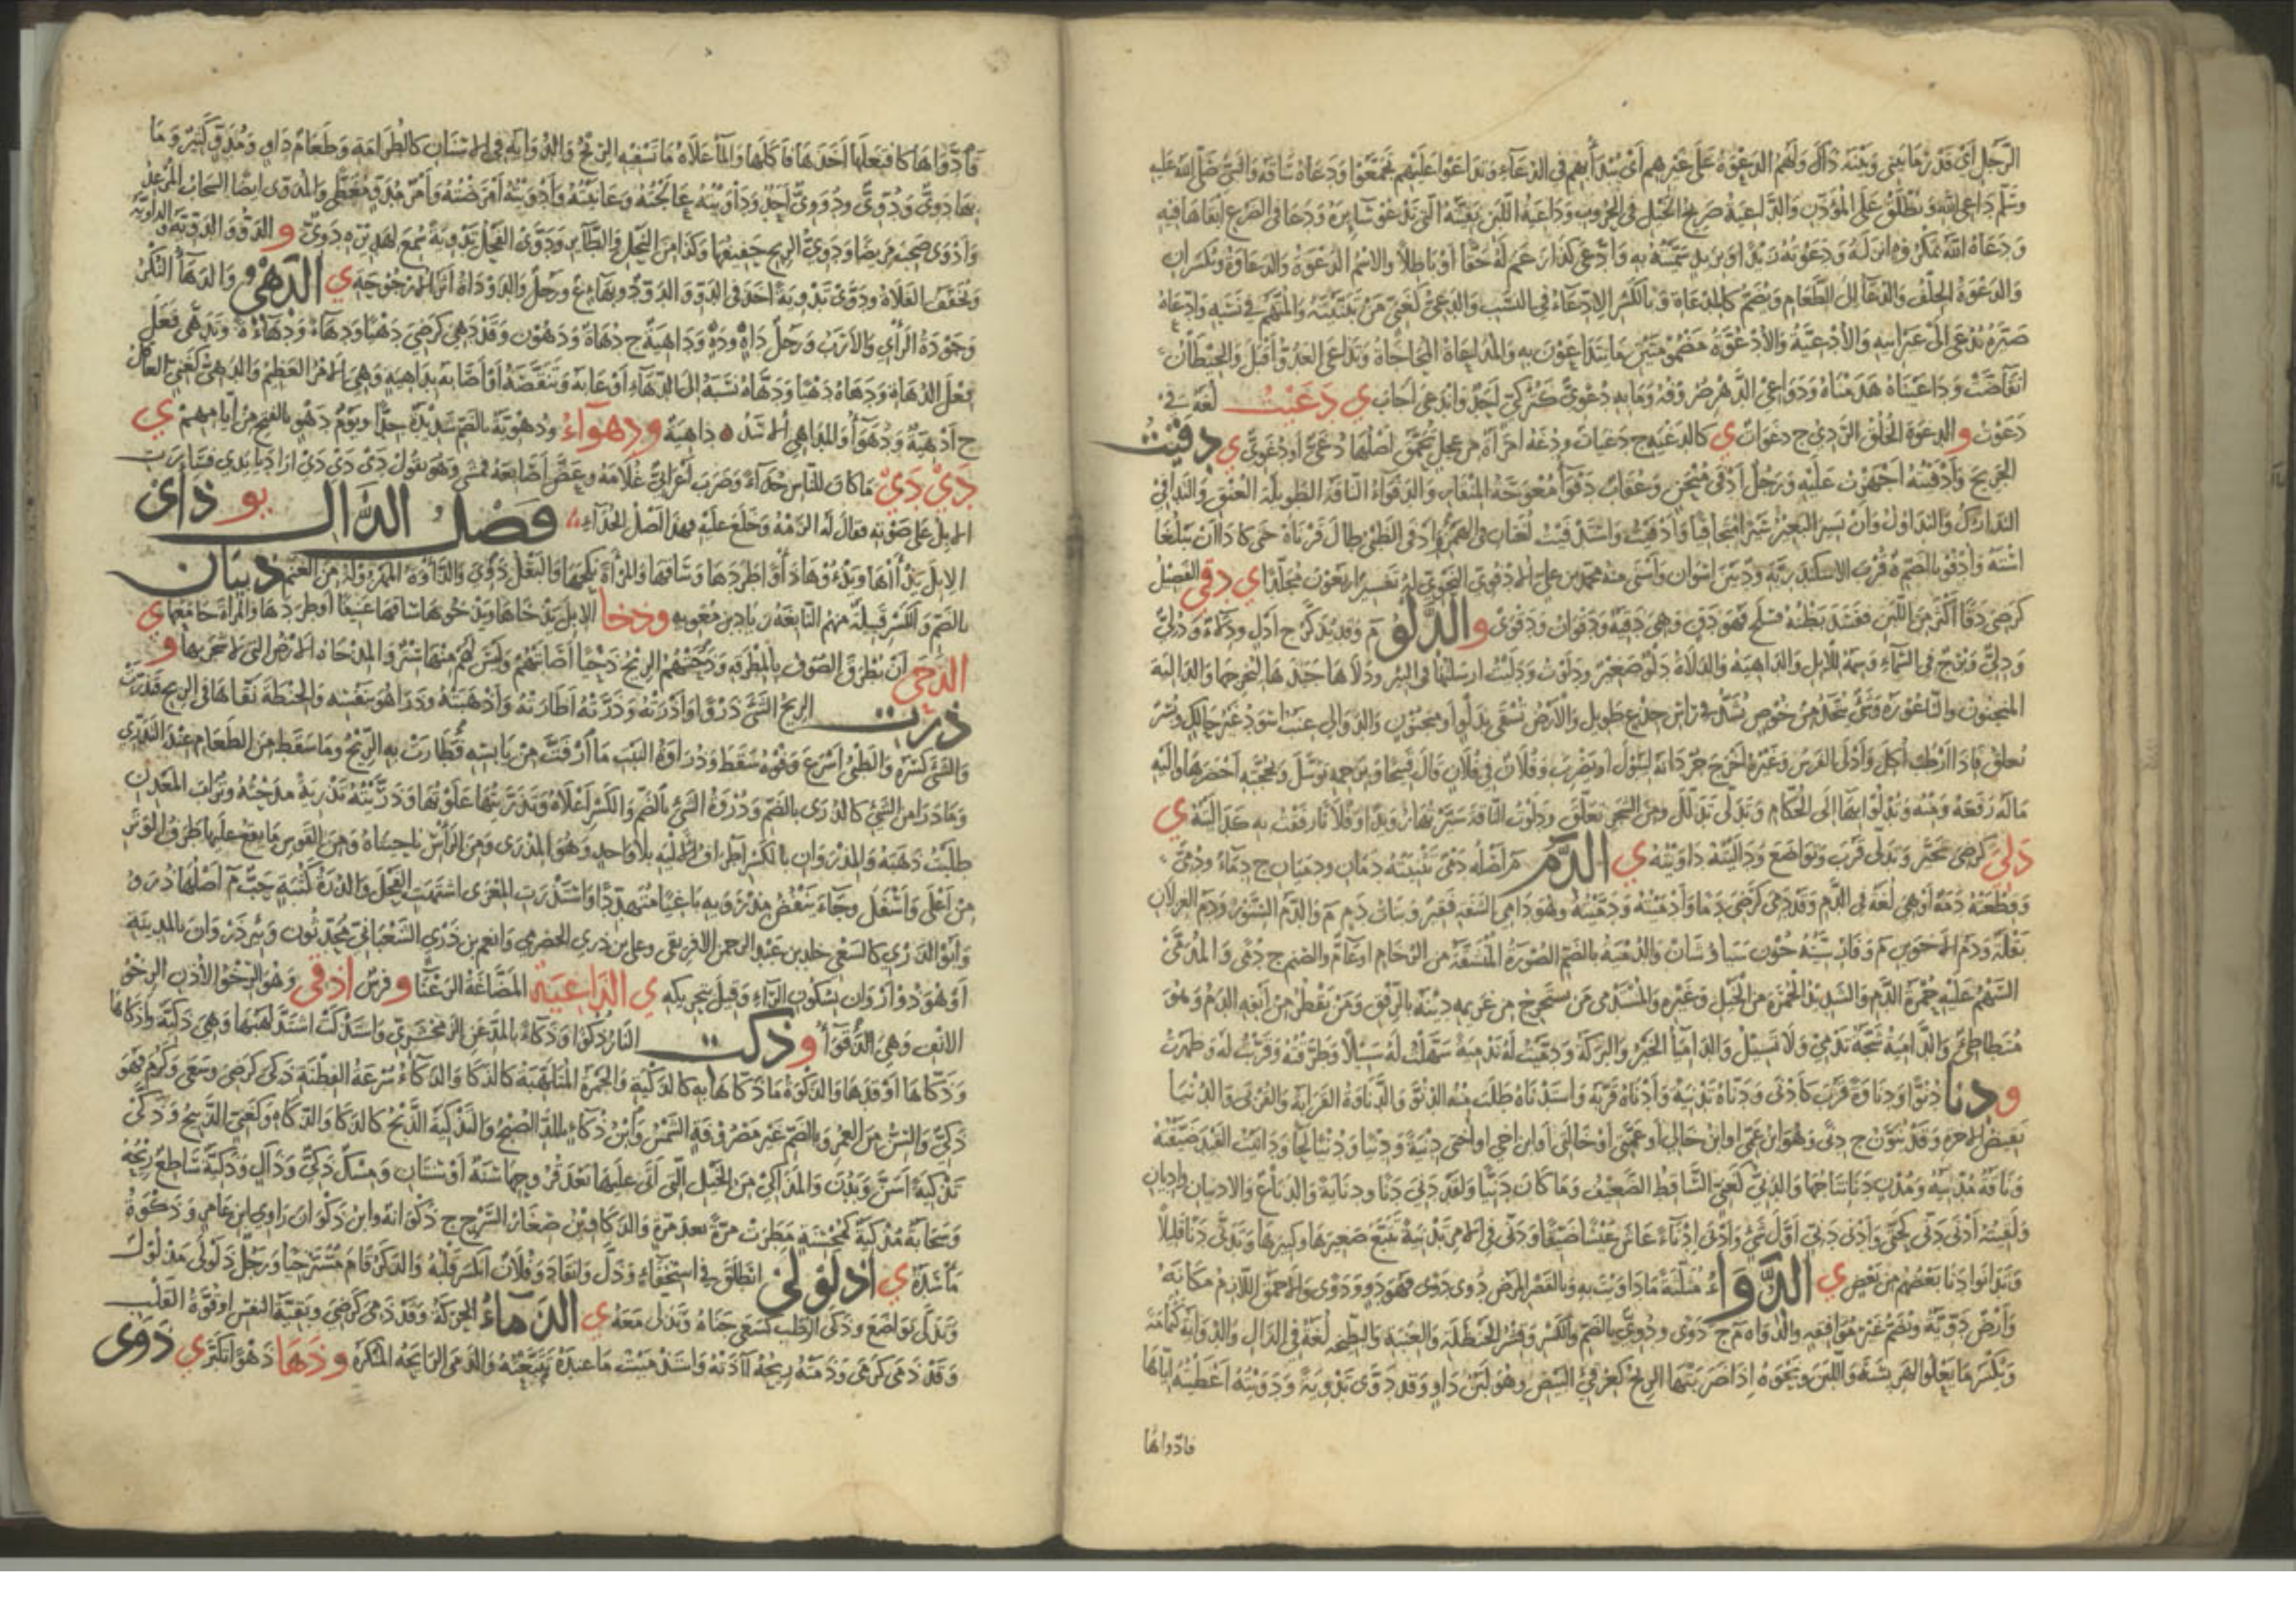 الرَّجُلِ أي قَدْرُ ما بيني وبينه ذاك ولهم الدعوة على غيرهم أي يُبدأ بهم في الدعاء وتداعوا عليهم تجمعوا ودعاه ساقه والنبي صلى الله عليه
وسلم داعي الله ويطلق على المؤذن والداعية صريخ الخيل في الحروب وداعية اللبن بقيته التي تدعو سائره ودعا في الضرع أبقاها فيه
ودعاه الله بمكروه أنزله به ودعوته زيدًا وبزيد سميته به وادعى كذا زعم له حقًا أو باطلًا والاسم الدعوة والدعاوة ويكسران
والدعوة الحلف والدعاء إلى الطعام ويضم كالمدعاة وبالكسر الادعاء في النسب والدعي كغني من تبنيته والمتهم في نسبه وادعاه
صيره يدعى إلى غير أبيه والأدعية والأدعوة مضمومتين ما يتداعون به والمداعاة المحاجاة وتداعى العدو أقبل والحيطان
انقاضت وداعيناه هدمناه ودواعي الدهر صروفه وما به دعوي كتركي أحد واندعى أجاب ي دَعَيْتُ لغة في
دعوت و الدعوة الخلق الردي ج دغوات ي كالدغية ج دغيات ودغة امرأة من عجل تحمق أصلها دغي أو دغو ي دفيت
الجريح وأدفيته أجهزت عليه ورجل أدفى منحن وعقاب دفواء معوجة المنقار والدفواء الناقة الطويلة العنق والتدافي
التدارك والتداول وأن يسير البعير سيرًا متجافيًا وأدفت واستدفيت لغتان في الهمز وأدفى الظبي طال قرناه حتى كادا أن يبلغا
استه وأدفو بالضم ة قرب الإسكندرية و د بين أسوان وإسنى منه محمد بن علي الأدفوي النحوي له تفسير أربعون مجلدا ي دقي الفصيل
كرضي دقا أكثر من اللبن ففسد بطنه فسلح فهو دق وهي دقية ودقوان ودقوى و الدلو م وقد يذكر ج أدل ودلاء ودلي
ودلي وبرج في السماء وسمة للإبل والداهية والدلاة دلو صغير ودلوت وأدليت أرسلتها في البئر ودلاها جبذها ليخرجها والدالية
المنجنون والناعورة وشيء يتخذ من خوص يشد في رأس جذع طويل والأرض تسقى بدلو أو منجنون والدوالي عنب أسود غير حالك وبسر
يعلق فإذا أرطب أكل وأدلى الفرس وغيره أخرج جردانه ليبول أو يضرب وفلان في فلان قال قبيحا وبرحمه توسل وبحجته أحضرها وإليه
ماله رفعه ومنه وتدلوا بها إلى الحكام وتدلى تدلل ومن الشجر تعلق ودلوت الناقة سيرتها رويدا وفلانا رفقت به كداليته ي
دلي كرضي تحير وتدلى قرب وتواضع وداليته داويته ي الدم م أصله دمي تثنيته دمان ودميان ج دماء ودمي
وقطعته دمة أو هي لغة في الدم وقد دمي كرضي دما وأدميته ودميته وهو دامي الشفة فقير وبنات دم م والدم السنور ودم الغزلان
بقلة ودم الأخوين م وفارسيته خون سياوشان والدمية بالضم الصورة المنقشة من الرخام أو عام والصنم ج دمى والمدمى
السهم عليه حمرة الدم والشديد الحمرة من الخيل وغيره والمستدمي من يستخرج من غريمه دينه بالرفق ومن يقطر من أنفه الدم وهو
متطاطئ والدامية شجة تدمي ولا تسيل والداميا الخير والبركة ودميت له تدمية سهلت له سبيلا وطرقته وقربت له وظهرت
و دنا دنوا ودناوة قرب كأدنى ودناه تدنية وأدناه قربه واستدناه طلب منه الدنو والدناوة القرابة والقربى والدنيا
نقيض الآخرة وقد تنون ج دنى وهو ابن عمي أو ابن خالي أو عمتي أو خالتي أو ابن أخي أو أختي دنية ودنيا ودنيا لحا ودانيت القيد ضيقته
وناقة مدنية ومدن دنا نتاجها والدني كغني الساقط الضعيف وما كان دنيا ولقد دني دنا ودناية والدناع والأدنيان واديان
ولقيته أدنى دني كغني وأدنى دنى أول شيء وأدنى إدناء عاش عيشا ضيقا ودنى في الأمر تدنية تتبع صغيرها وكبيرها وتدنى دنا قليلا
وتدانوا دنا بعضهم من بعض ي الدواء مثلثة ما داويت به وبالقصر المرض دوي دوى فهو دو ودوى والأحمق اللازم مكانه
وأرض دوية وتضم غير موافقة والدواة م ج دوى ودوي بالضم والكسر وقشر الحنظلة والعنبة والبطيخة لغة في الذال والدواية كثمامة
ويكسر ما يعلو الهريسة واللبن ونحوه إذا ضربتها الريح كغرقئ البيض وهو لبن داو وقد دوى تدوية ودويته أعطيته إياها
فادواها
فادواها كافتعلها أخذها فأكلها والماء علاه ما تسفيه الريح والدواية في الأسنان كالطرامة وطعام داو ومدو كثير وما
بها دوي ودوي ودووي أحد وداويته عالجته وعانيته وأدويته أمرضته وأمر مدو مغطى والمدوي أيضا السحاب المرعد
وأدوى صحب مريضا ودوي الريح حفيفها وكذا من النحل والطائر ودوى الفحل تدوية سمع لهديره دوي و الدو والدوية والداوية
ويخفف الفلاة ودوى تدوية أخذ في الدو والدو د وبهاء ع ورجل والدوداة أثر الأرجوحة ي الدهي والدهاء النكر
وجودة الرأي والأرب ورجل داه وده وداهية ج دهاة ودهون وقد دهي كرضي دهيا ودهاء ودهاءة وتدهى فعل
فعل الدهاة ودهاه دهيا ودهاه نسبه إلى الدهاء أو عابه وتنقصه أو أصابه بداهية وهي الأمر العظيم والدهي كغني العاقل
ج أدهية ودهواء والدواهي الأشد داهية و دهواء ودهوية بالضم شديدة جدا ويوم دهو بالفتح من أيامهم ي
دي دي ما كان للناس حداء وضرب أعرابي غلامه وعض أصابعه فمشى وهو يقول دي دي دي أراد يا يدي فسارت
الإبل على صوته فقال له الزمه وخلع عليه فهذا أصل الحداء فصل الذال يو ذأى
الإبل يذآها ويذؤوها ذأوا طردها وساقها والمرأة نكحها والبقل ذوي والذأوة المهزولة من الغنم ذبيان
بالضم والكسر قبيلة منهم النابغة زياد بن معوية و ذحا الإبل يذحاها ويذحوها ساقها عنيفا أو طردها والمرأة جامعها ي
الذحي أن يطرق الصوف بالمطرقة وذحتهم الريح ذحيا أصابتهم وليس لهم منها ستر والمذحاة الأرض التي لا شجر بها و
ذرت الريح الشيء ذروا وأذرته وذرته أطارته وأذهبته وذرا هو بنفسه والحنطة نقاها في الريح فتذرت
والشيء كسره والظبي أسرع وفوه سقط وذراوة النبت ما ارفت من يابسه فطارت به الريح وما سقط من الطعام عند التذري
وما ذرا من الشيء كالذرى بالضم وذروة الشيء بالضم والكسر أعلاه وتذريتها علوتها وذريته تذرية مدحته وتراب المعدن
طلبت ذهبه والمذروان بالكسر أطراف الألية بلا واحد وهو المذرى ومن الرأس ناحيتاه ومن القوس ما يقع عليها طرف الوتر
من أعلى وأسفل وجاء ينفض مذرويه باغيا متهددا واستذرت المعزى اشتهت الفحل والذرة كثبة حب م أصلها ذرو
وأبو الذري كالسعي خلد بن عبد الرحمن الإفريقي وعلي بن ذري الحضرمي وأنعم بن ذري الشعباني محدثون وبئر ذروان بالمدينة
أو هو ذو أروان بسكون الراء وقيل بتحريكه ي الذاعية المضاغة الرعنا و فرس أذقى وهو الرخو الأذن الرخو
الأنف وهي الذقواء و ذكت النار ذكوا وذكاء بالمد عن الزمخشري واستذكت اشتد لهبها وهي ذكية وأذكاها
وذكاها أوقدها والذكوة ما ذكاها به كالذكية والجمرة الملتهبة كالذكا والذكاء سرعة الفطنة ذكي كرضي وسعى وكرم فهو
ذكي والسن من العمر وبالضم غير مصروفة الشمس وابن ذكاء بالمد الصبح والتذكية الذبح كالذكا والذكاة وكغني الذبيح وذكى
تذكية أسن وبدن والمذاكي من الخيل التي أتى عليها بعد قروحها سنة أو سنتان ومسك ذكي وذاك وذكية ساطع ريحه
وسحابة مذكية كمحسنة مطرت مرة بعد مرة والذكاوين صغار السرح ج ذكوانة وابن ذكوان راوي ابن عامر وذكوة
مأسدة ي اذلولى انطلق في استخفاء وذل وانقاد وفلان انكسر قلبه والذكر قام مسترخيا ورجل ذلولى مذلول
وتذلى تواضع وذلى الرطب كسعى جناه وتذلى معه ي الذماء الحركة وقد ذمي كرضي وبقية النفس أو قوة القلب
وقد ذمى كرمى وذمته ريحه آذته واستذميت ما عنده تتبعته والذمى الرائحة المنكرة و ذها ذهوا تكبر ي ذوى